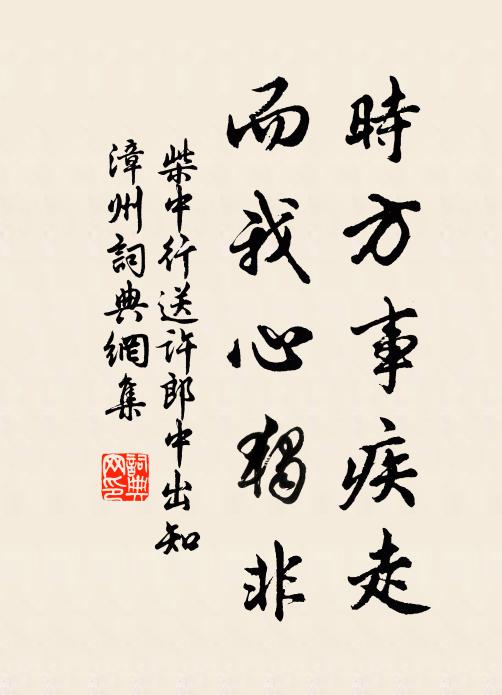 時方事疾走
而我心獨非
柴中行送許郎中出知
漳州詞典網集
詞典
网印